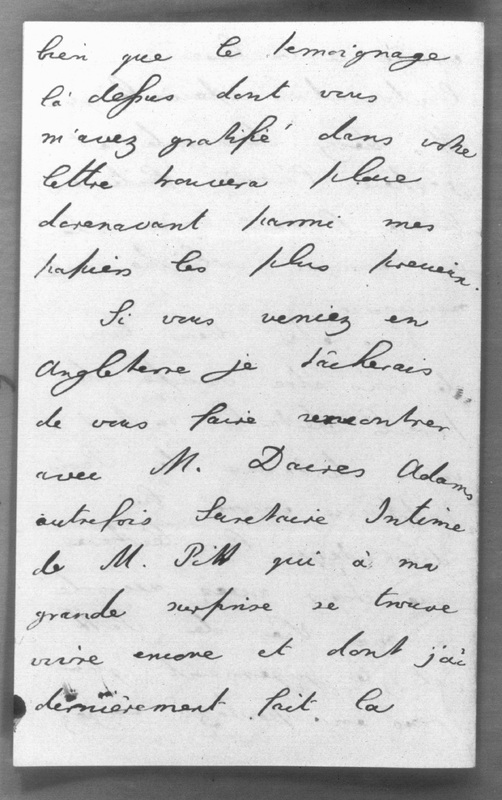 bien que le temoignage
là dessus dont vous
m'avez gratifié dans votre
lettre trouvera place
dorenavant parmi mes
papiers les plus precieux.
Si vous veniez en
Angleterre je tâcherais
de vous faire rencontrer
avec M. Dacres Adams
autrefois Secretaire Intime
de M. Pitt qui à ma
grande surprise se trouve
vivre encore et dont j'ai
dernièrement fait la